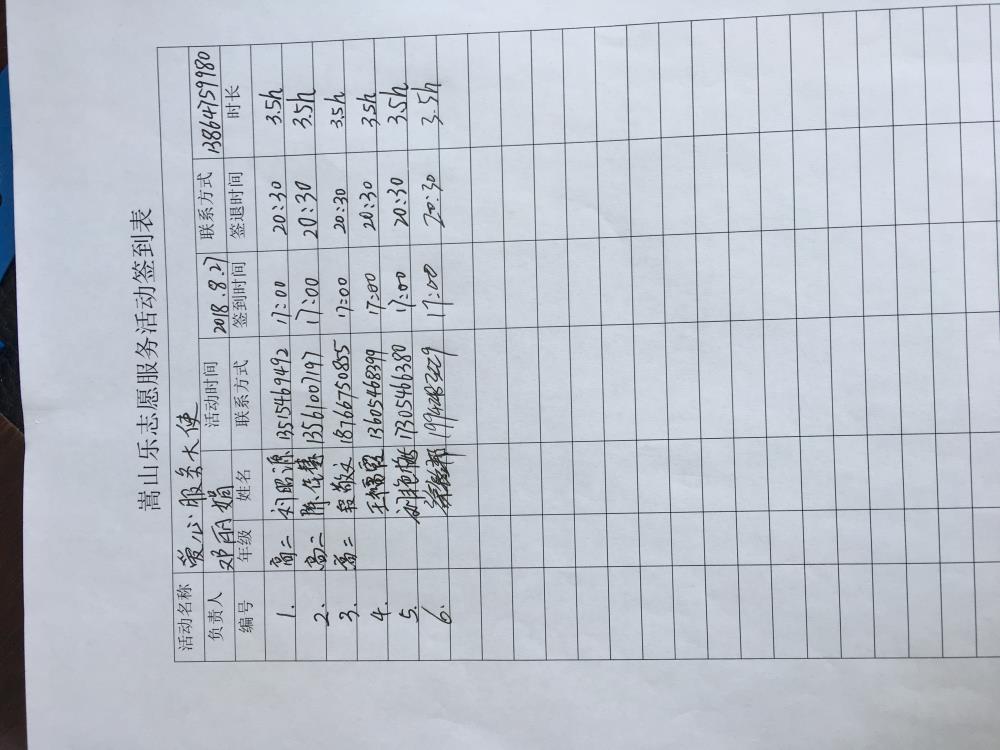 嵩山乐志愿服务活动签到表
活动名称 爱心服务大使
负责人 邓丽娟 活动时间 2018.8.27 联系方式 13864759980
编号 年级 姓名 联系方式 签到时间 签退时间 时长
1. 高二 刘昭源 13515469492 17:00 20:30 3.5h
2. 高二 13561007197 17:00 20:30 3.5h
3. 高二 段敬文 18766750855 17:00 20:30 3.5h
4. 王儒霞 13605468399 17:00 20:30 3.5h
5. 17305466380 17:00 20:30 3.5h
6. 17:00 20:30 3.5h